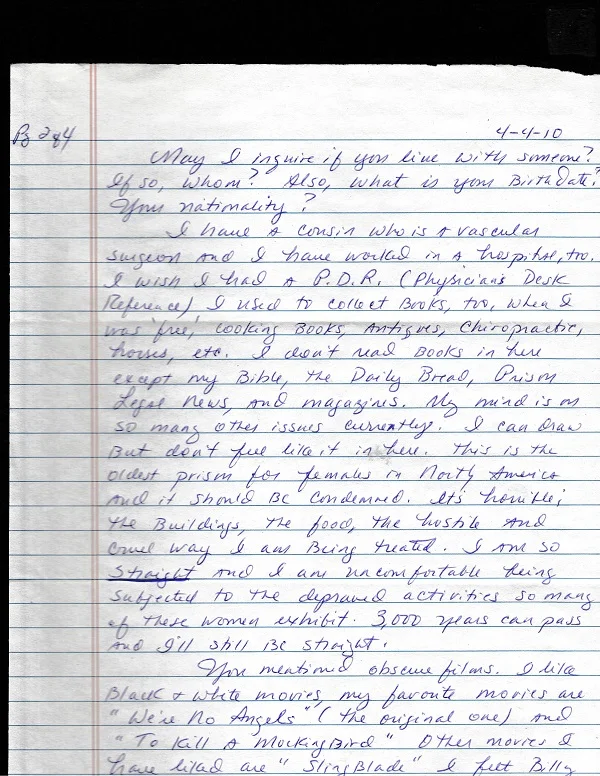 Pg 2 of 4
4-4-10
May I inquire if you live with someone?
If so, whom? Also, what is your Birthdate?
Your nationality?
I have a cousin who is a vascular
surgeon and I have worked in a hospital, too.
I wish I had a P.D.R. (Physician's Desk
Reference) I used to collect Books, too, when I
was free, Cooking Books, Antiques, Chiropractic,
horses, etc. I don't read Books in here
except my Bible, the Daily Bread, Prison
Legal News, and magazines. My mind is on
so many other issues currently. I can draw
But don't feel like it in here. This is the
oldest prison for females in North America
and it should be condemned. It's horrible;
the Buildings, the food, the hostile and
cruel way I am Being treated. I am so
straight and I am uncomfortable being
subjected to the depraved activities so many
of these women exhibit. 3,000 years can pass
and I'll still Be straight.
You mentioned obscure films. I like
Black + white movies, my favorite movies are
"We're No Angels" (the original one) and
"To Kill A MockingBird" Other movies I
have liked are "SlingBlade" I felt Billy